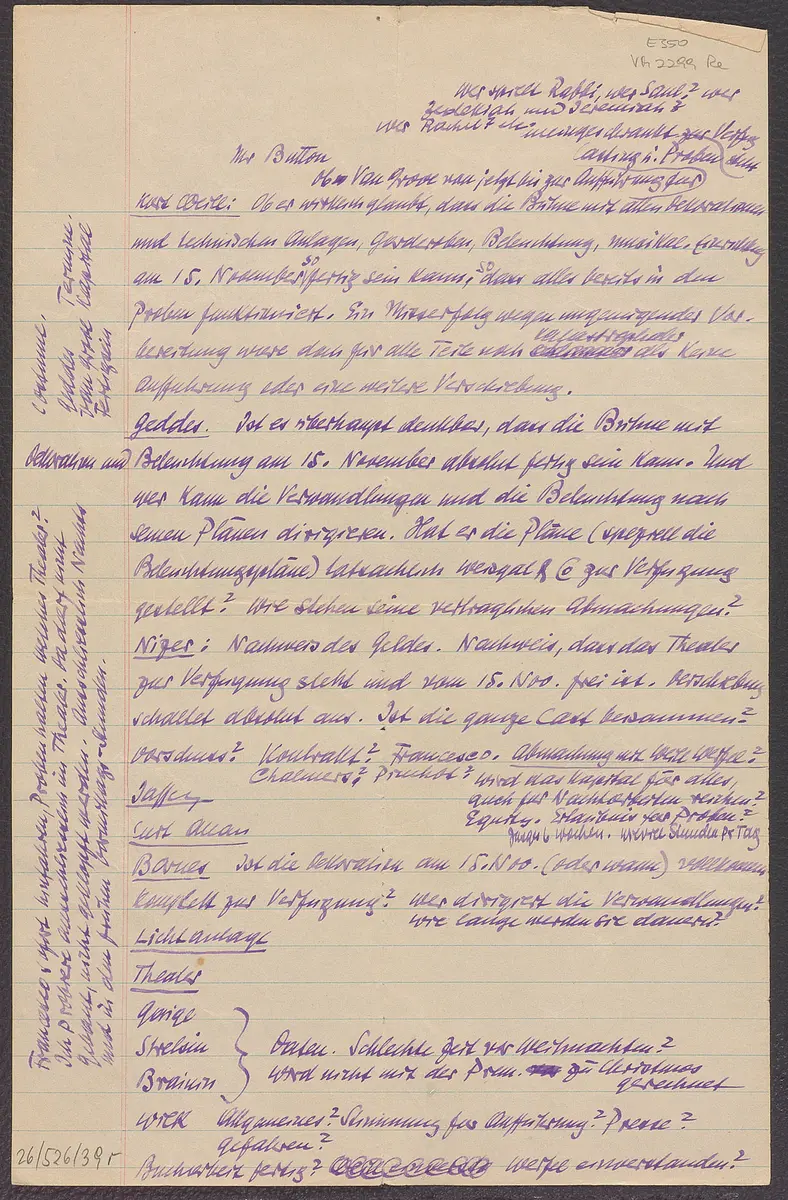 E350
VM 2299 Re
wer spielt Rabbi, wer Saul? wer
Zedekiah und Jeremiah?
wer Rachel? etc. uneingeschränkt zur Verfg
Mr Button
Casting u. Proben
ob Van Grove von jetzt bis zur Aufführung für
Kurt Weill: Ob er wirklich glaubt, dass die Bühne mit allen Dekorationen
und technischen Anlagen, Garderoben, Beleuchtung, musikal. Einrichtung
am 15. November so fertig sein kann, so dass alles bereits in den
Proben funktioniert. Ein Misserfolg wegen ungenügender Vor-
bereitung wäre doch für alle Teile noch
als keine
Aufführung oder eine weitere Verschiebung.
Geddes. Ist es überhaupt denkbar, dass die Bühne mit
Dekoration und Beleuchtung am 15. November absolut fertig sein kann. Und
wer kann die Verwandlungen und die Beleuchtung nach
seinen Plänen dirigieren. Hat er die Pläne (speziell die
Beleuchtungspläne) tatsächlich Weisgal & Co zur Verfügung
gestellt? Wie stehen seine vertraglichen Abmachungen?
Nizer: Nachweis des Geldes. Nachweis, dass das Theater
zur Verfügung steht und vom 15. Nov. frei ist. Verschiebung
schaltet absolut aus. Ist die ganze Cast beisammen?
Vorschuss? Kontrakt? Francesco. Abmachung mit Weill Werfel?
Chalmers? Pinchot? wird das Kapital für alles,
auch für Nachtarbeiten reichen?
Jaffey
Equity. Erlaubnis vor Proben?
6 Wochen. wieviel Stunden pr Tag
Curt Allan
Barnes Ist die Dekoration am 15. Nov. (oder wann) vollkommen
komplett zur Verfügung? wer dirigiert die Verwandlungen?
wie lange werden sie dauern?
Lichtanlage
Theater
Gorige
Strelsin
Brainin
Daten. Schlechte Zeit vor Weihnachten?
wird nicht mit der Prem. zu Christmas
gerechnet
Wilk Allgemeines? Stimmung für Aufführung? Presse?
Gefahren?
Bucharbeit fertig? Werfel einverstanden?
Columne.
Geddes Termine.
Van Grove Kapital
Francesco sofort hinfahren, Proben halten wegen Theater?
Ich probiere ausschliesslich im Theater. Da darf nicht
gebaut, nicht geklopft werden. Ausschliesslich Nachts
und in den frühen Vormittags-Stunden.
26/526/39 r